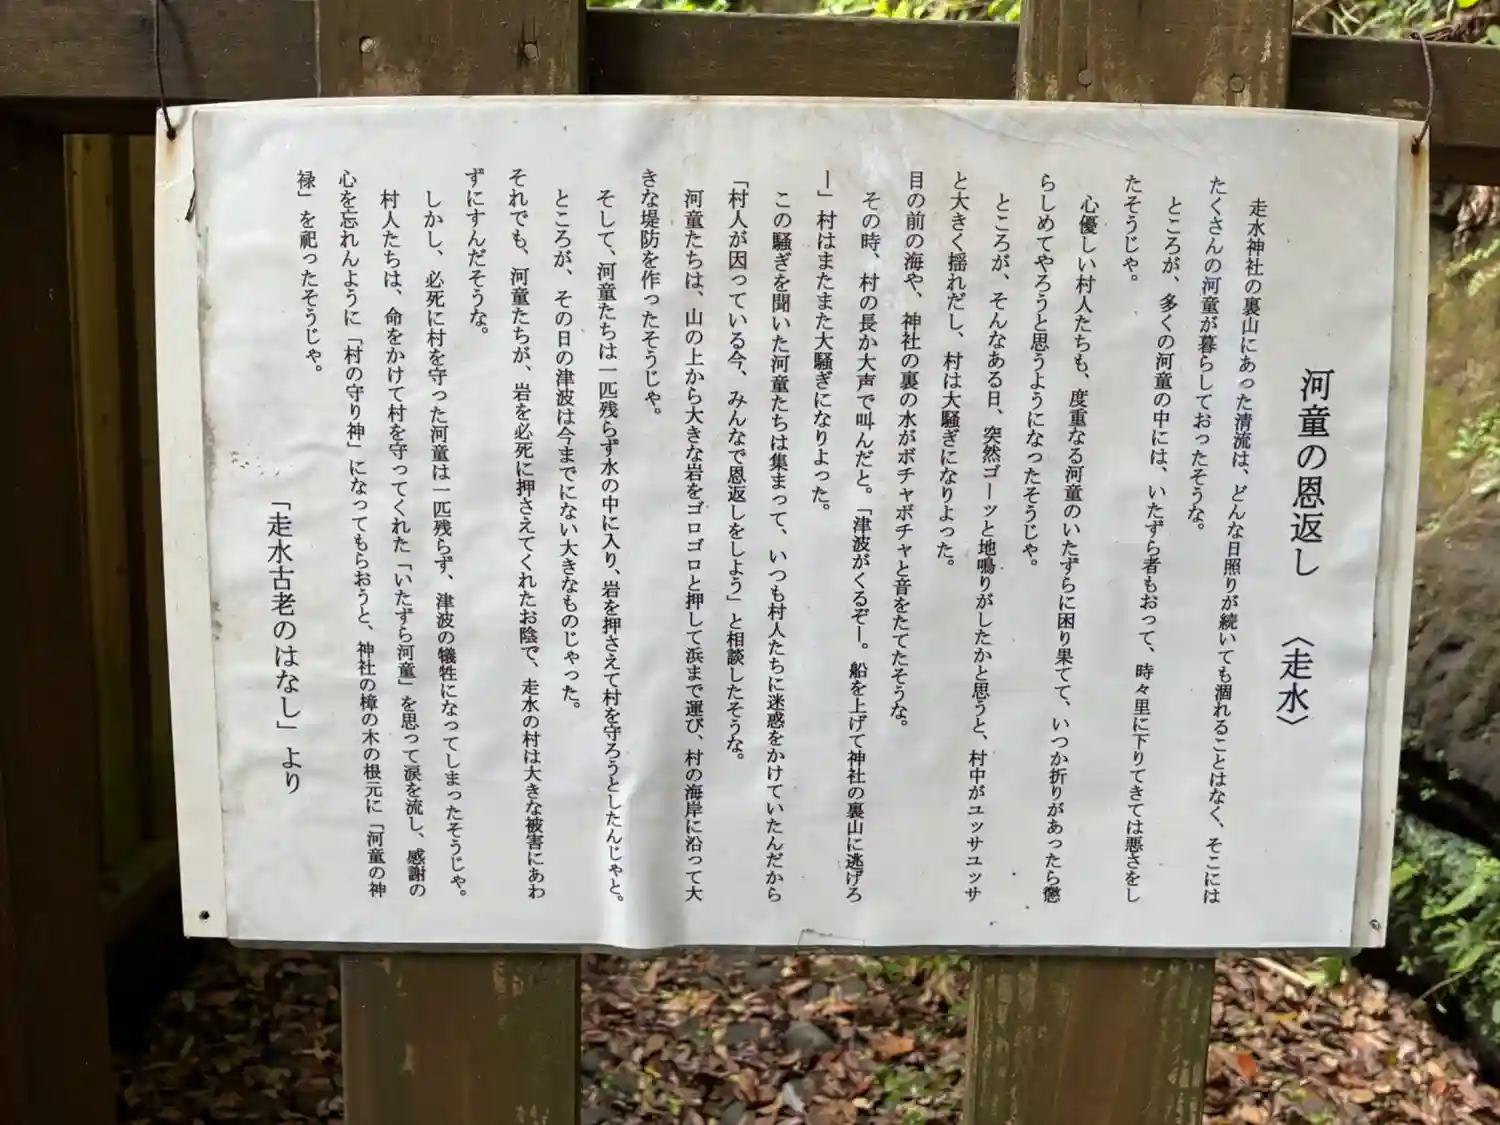 河童の恩返し 〈走水〉
走水神社の裏山にあった清流は、どんな日照りが続いても涸れることはなく、そこには
たくさんの河童が暮らしておったそうな。
ところが、多くの河童の中には、いたずら者もおって、時々里に下りてきては悪さをし
たそうじゃ。
心優しい村人たちも、度重なる河童のいたずらに困り果てて、いつか折りがあったら懲
らしめてやろうと思うようになったそうじゃ。
ところが、そんなある日、突然ゴーッと地鳴りがしたかと思うと、村中がユッサユッサ
と大きく揺れだし、村は大騒ぎになりよった。
目の前の海や、神社の裏の水がボチャボチャと音をたてたそうな。
その時、村の長か大声で叫んだと。「津波がくるぞー。船を上げて神社の裏山に逃げろ
ー」村はまたまた大騒ぎになりよった。
この騒ぎを聞いた河童たちは集まって、いつも村人たちに迷惑をかけていたんだから
「村人が因っている今、みんなで恩返しをしよう」と相談したそうな。
河童たちは、山の上から大きな岩をゴロゴロと押して浜まで運び、村の海岸に沿って大
きな堤防を作ったそうじゃ。
そして、河童たちは一匹残らず水の中に入り、岩を押さえて村を守ろうとしたんじゃと。
ところが、その日の津波は今までにない大きなものじゃった。
それでも、河童たちが、岩を必死に押さえてくれたお陰で、走水の村は大きな被害にあわ
ずにすんだそうな。
しかし、必死に村を守った河童は一匹残らず、津波の犠牲になってしまったそうじゃ。
村人たちは、命をかけて村を守ってくれた「いたずら河童」を思って涙を流し、感謝の
心を忘れんように「村の守り神」になってもらおうと、神社の樟の木の根元に「河童の神
禄」を祀ったそうじゃ。
「走水古老のはなし」より